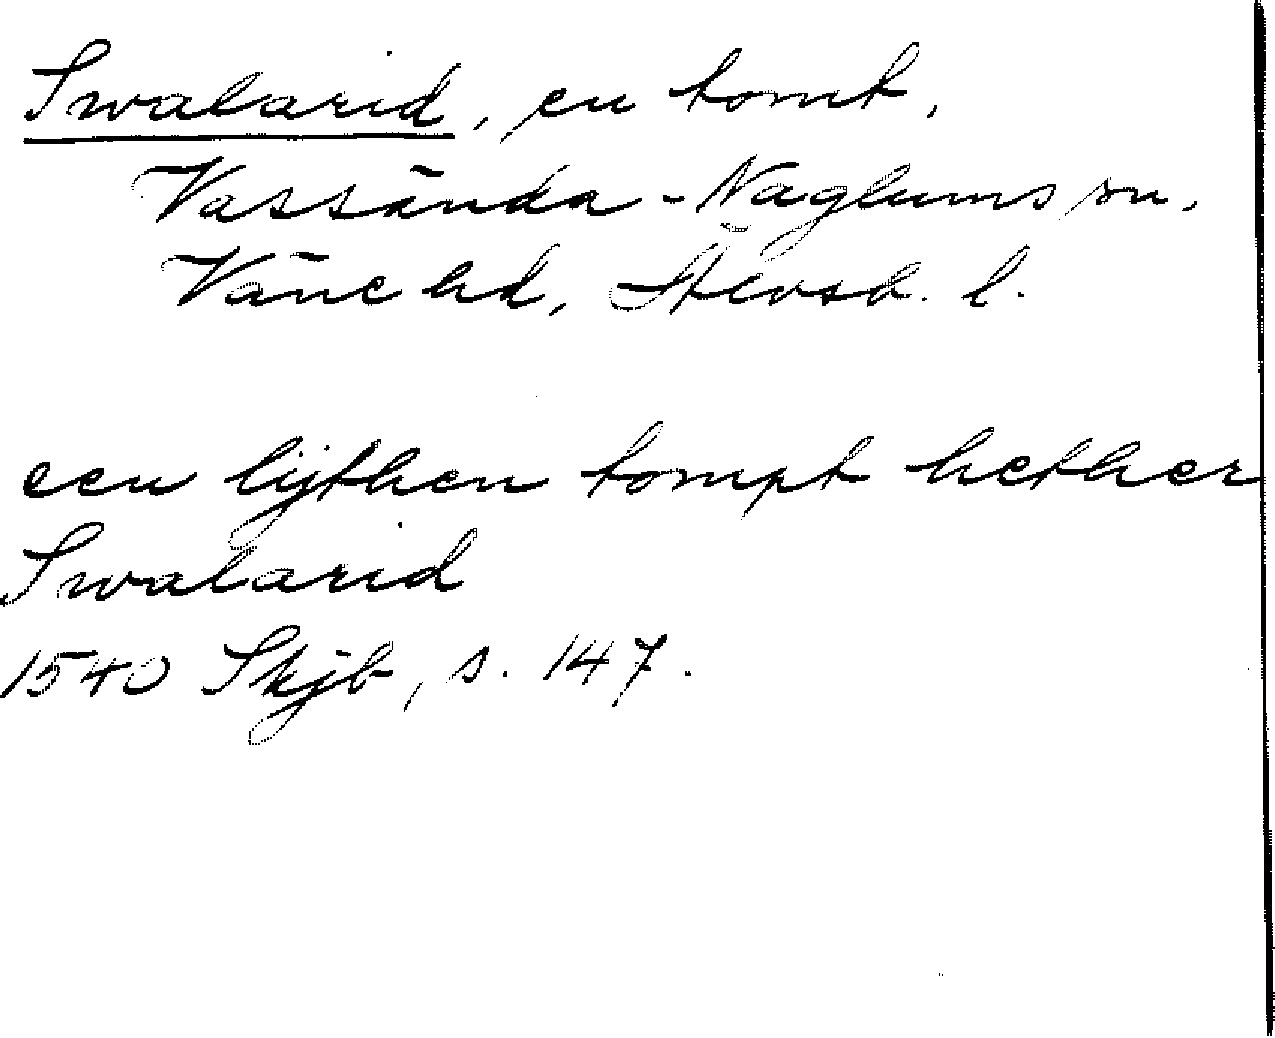 Swalarid, en tomt,
Vassända-Naglums sn,
Väne hd, Älvsb. l.
een lijthen tompt hether
Swalarid
1540 Skjb, s. 147.